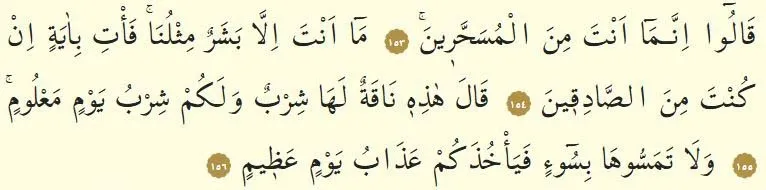 قَالُٓوا اِنَّمَٓا اَنْتَ مِنَ الْمُسَحَّر۪ينَۚ ﴿١٥٣﴾ مَٓا اَنْتَ اِلَّا بَشَرٌ مِثْلُنَاۚ فَأْتِ بِاٰيَةٍ اِنْ
كُنْتَ مِنَ الصَّادِق۪ينَ ﴿١٥٤﴾ قَالَ هٰذِه۪ نَاقَةٌ لَهَا شِرْبٌ وَلَكُمْ شِرْبُ يَوْمٍ مَعْلُومٍۚ
﴿١٥٥﴾ وَلَا تَمَسُّوهَا بِسُٓوءٍ فَيَأْخُذَكُمْ عَذَابُ يَوْمٍ عَظ۪يمٍ ﴿١٥٦﴾